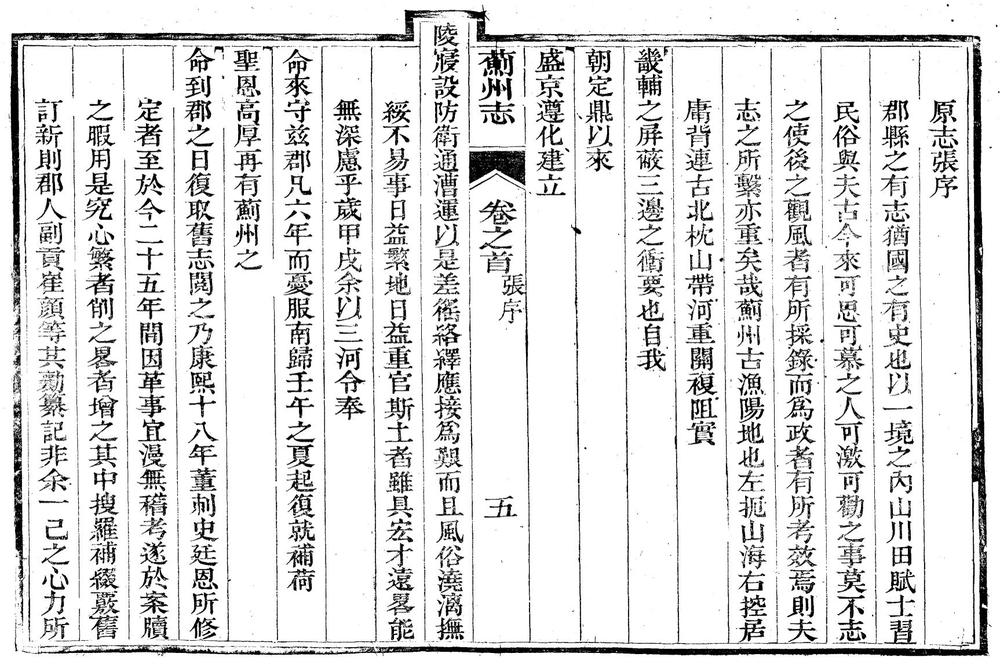 原志張序
郡縣之有志猶國之有史也以一境之內山川田賦士習
民俗與夫古今來可思可慕之人可激可勸之事莫不志
之使後之觀風者有所採錄而爲政者有所考效焉則夫
志之所繫亦重矣哉薊州古漁陽地也左扼山海右控居
庸背連古北枕山帶河重關複阻實
畿輔之屏蔽三邊之衝要也自我
朝定鼎以來
盛京遵化建立
薊州志
卷之首
張序
五
陵寢設防衛通漕運以是差徭絡繹應接爲艱而且風俗澆漓撫
綏不易事日益繁地日益重官斯土者雖具宏才遠畧能
無深慮乎歲甲戌余以三河令奉
命來守兹郡凡六年而憂服南歸壬午之夏起復就補荷
聖恩高厚再有薊州之
命到郡之日復取舊志閱之乃康熙十八年董刺史廷恩所修
定者至於今二十五年間因革事宜漫無稽考遂於案牘
之暇用是究心繁者削之畧者增之其中搜羅補綴覈舊
訂新則郡人副貢崔顔等其勷纂記非余一己之心力所